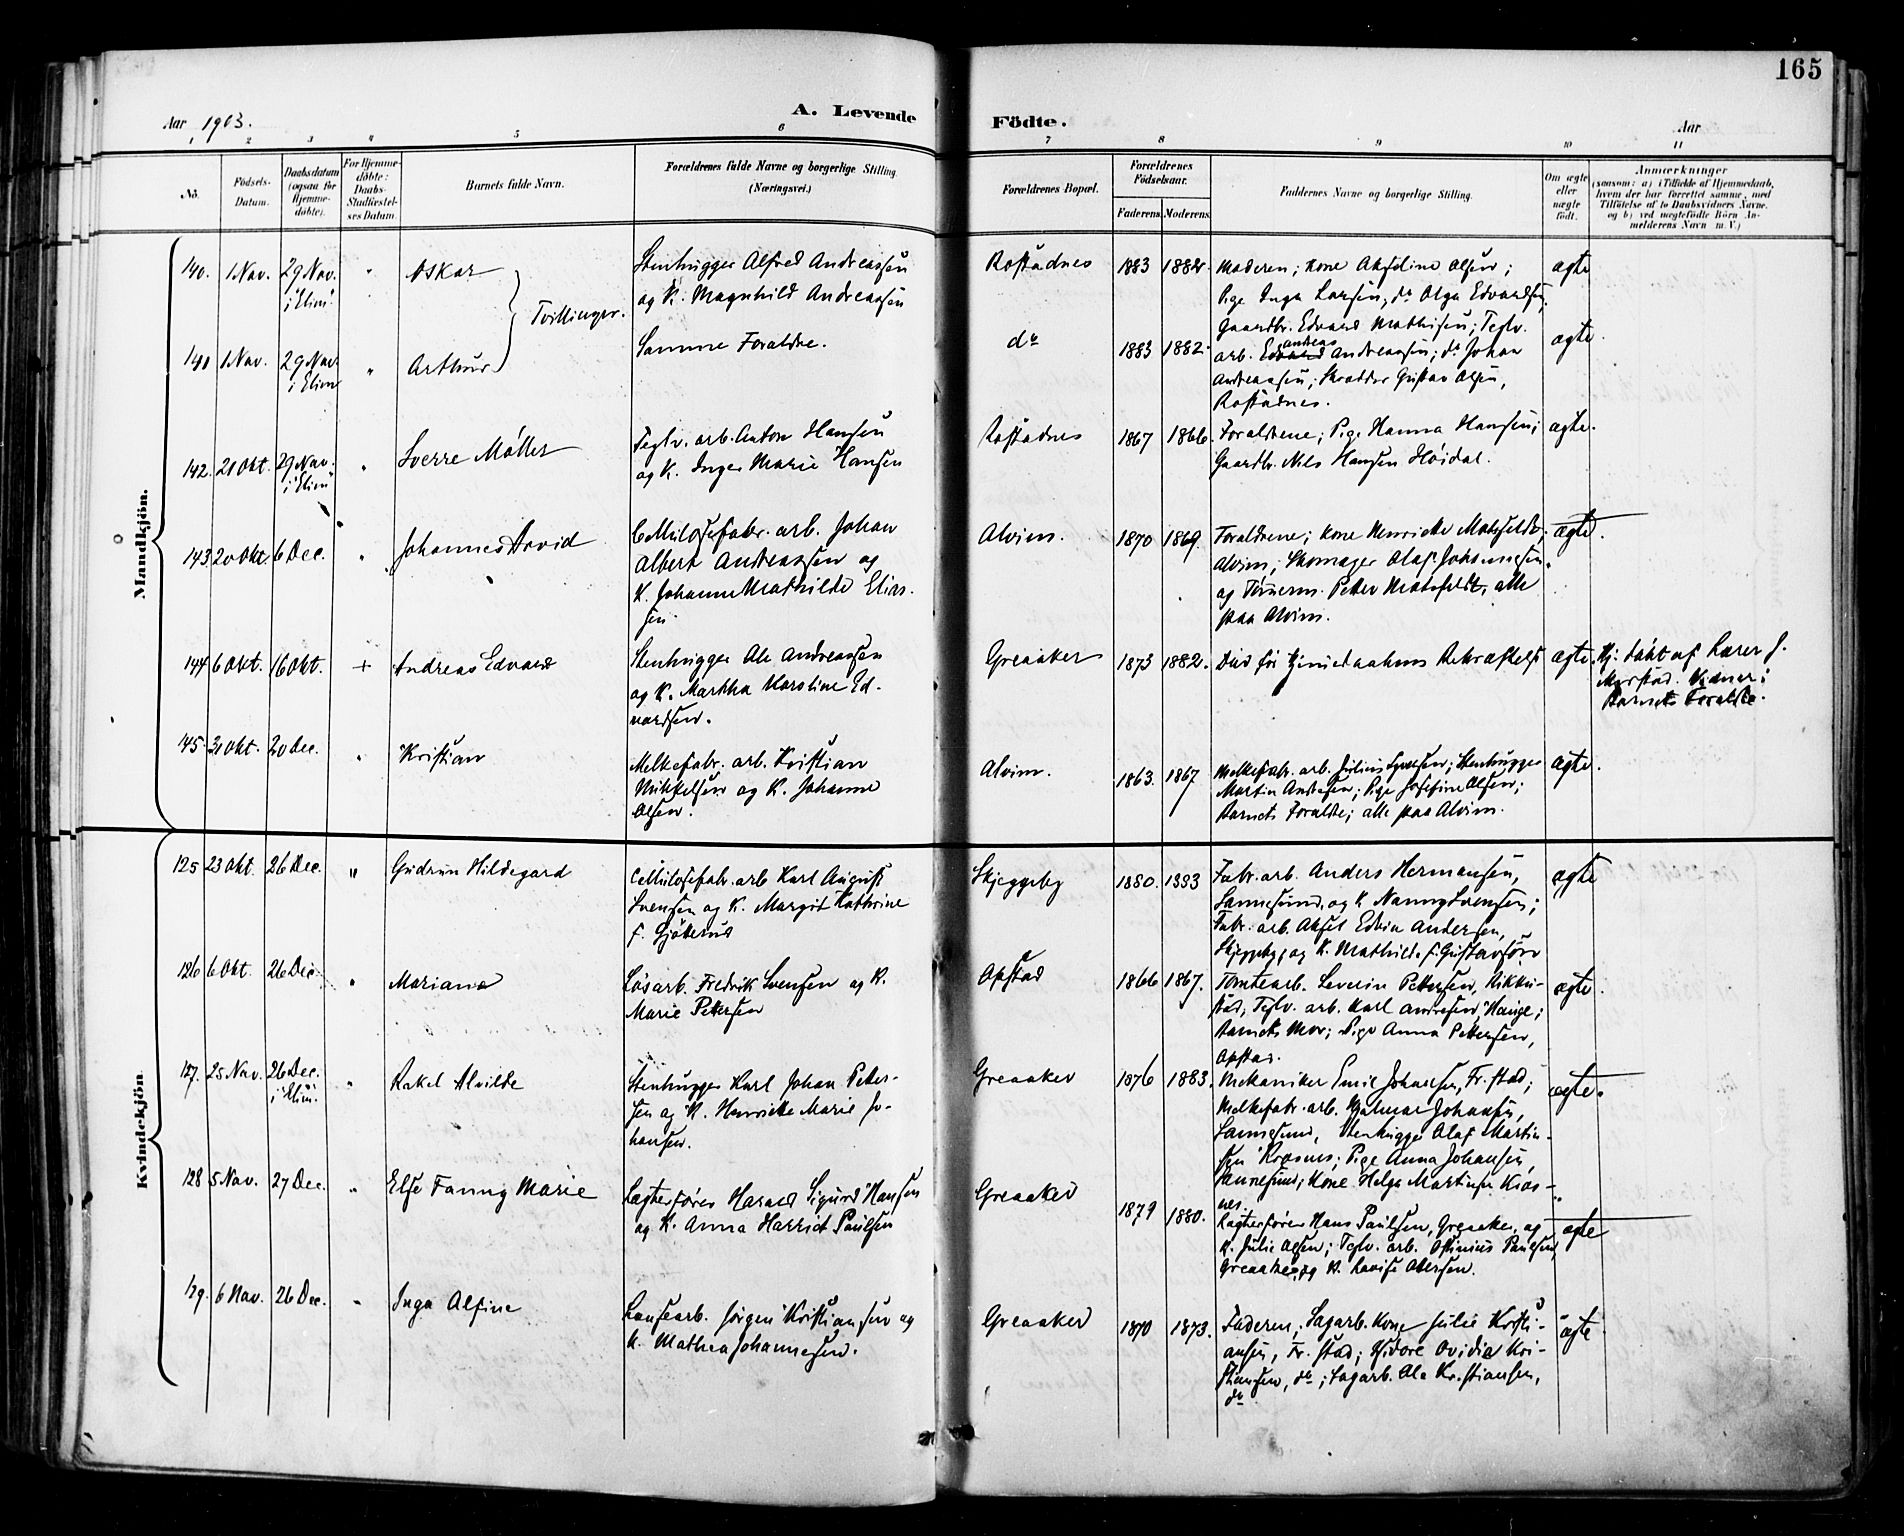 165
Aar 1903.
A. Levende
Födte.
Aar
1 2 3 4 5 6 7 8 9 10 11
No.
Födsels-
Datum.
Daabsdatum
(ogsaa for
Hjemme-
døbte).
For Hjemme-
døbte:
Daabs-
Stadfæstel-
ses Datum.
Barnets fulde Navn.
Forældrenes fulde Navne og borgerlige Stilling.
(Næringsvei.)
Forældrenes Bopæl.
Forældrenes
Födselsaar.
Faderens. Moderens.
Faddernes Navne og borgerlige Stilling.
Om ægte
eller
uægte
født.
Anmærkninger
(saasom: a) i Tilfælde af Hjemmedaab,
hvem der har forrettet samme, med
Tilføielse af to Daabsvidners Navne,
og b) ved uægtefødte Börn An-
melderens Navn m. V.)
Mandkjön.
140. 1 Nov. 29 Nov.
i "Elim"
" Askar
Tvillinger.
Stenhugger Alfred Andreassen
og K. Magnhild Andreassen
Rostadnes 1883 1882.
Moderen; Kone Akseline Olsen;
Pige Inga Larsen, do Olga Edvardsen,
Gaardbr. Edvard Mathisen; Teglv.
ægte
141 1 Nov. 29 Nov.
i Elim
" Arthur
Samme Forældre.
do 1883 1882.
arb. Edvard Andreas Andreassen; do Johan
Andreassen; Skrædder Gustav Olsen,
Rostadnes.
ægte
142. 21 Okt. 29 Nov.
i "Elim"
" Sverre Møller
Teglv. arb. Anton Hansen
og K. Inger Marie Hansen
Rostadnes 1867 1866.
Forældrene; Pige Hanna Hansen;
Gaardbr. Nils Hansen Høidal.
ægte.
143 20 Okt. 6 Dec.
" Johannes Arvid
Cellulosefabr. arb. Johan
Albert Andreassen og
K. Johanne Mathilde Elias-
sen.
Alvim. 1870 1869.
Forældrene; Kone Henriette Matsfeldt,
Alvim; Skomager Olaf Johannesen
og Petter Matsfeldt, alle
paa Alvim.
ægte.
144 6 Okt. 16 Okt.
+ Andreas Edvard
Stenhugger Ole Andreassen
og K. Martha Karoline Ed-
vardsen.
Greaaker 1873 1882.
Død før Hjemmedaabens Bekræftelse
ægte.
Hj. døbt af Lærer J.
Vidner:
Barnets Forældre.
145. 31 Okt. 20 Dec.
" Kristian
Melkefabr. arb. Kristian
Mikkelsen og K. Johanne
Olsen.
Alvim. 1863. 1867
Melkefabr. arb. Julius Syversen; Stenhugger
Martin Andersen; Pige Josefine Olsen;
Barnets Forældre; alle paa Alvim.
ægte.
Kvindekjön
125 23 Okt. 26 Dec.
" Gudrun Hildegard
Cellulosefabr. arb Karl August
Svensen og K. Margit Kathrine
f. Gjøterud
Skjeggeby 1880. 1883
Fabr. arb. Anders Hermansen,
Sannesund, og K. Nanny Svensen;
Fabr. arb. Aksel Edvin Andersen,
Skjeggeby, og K. Mathilde f. Gustavsøn
ægte
126 6 Okt. 26 Dec.
" Mariane
Løsarb. Fredrik Svensen og K.
Marie Pettersen
Opstad 1866 1867.
Tomtearb. Severin Pettersen, Kikku-
stad, Teglv. arb. Karl Andresen, Hauge;
Barnets Mor; Pige Anna Pettersen,
Opstad.
ægte.
127. 25 Nov. 26 Dec.
i "Elim".
" Rakel Alvilde
Stenhugger Karl Johan Peter-
sen og K. Henriette Marie Jo-
hansen.
Greaaker 1876 1883.
Mekaniker Emil Johansen, Fr.stad;
Melkefabr. arb. Hjalmar Johansen,
Sannesund, Stenhugger Olaf Martin-
sen Krosnes; Pige Anna Johansen,
Sannesund; Kone Helga Martinsen Kros-
nes.
ægte.
128 5 Nov. 27 Dec.
" Else Fanny Marie
Lagterfører Harald Sigurd Hansen
og K. Anna Harriet Paulsen
Greaaker 1879 1880.
Lagterfører Hans Paulsen, Greaaker, og
K. Julie Olsen; Teglv. arb. Ostinius Paulsen,
Greaaker, og K. Lovise Olersen.
ægte
129. 6 Nov. 26 Dec.
" Inga Alfine
Lansearb. Jörgen Kristiansen og
K. Mathea Johannesen.
Greaaker 1870 1873.
Faderen; Sagarb. Kone Julie Kristi-
ansen, Fr. stad; Isidore Ovidia Kri-
stiansen, do; Sagarb. Ole Kristiansen,
do
ægte